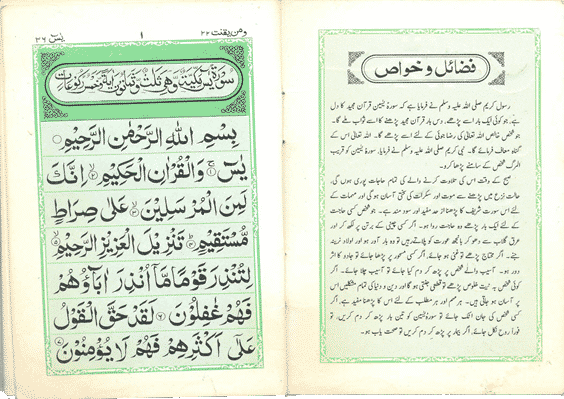 فضائل و خواص
رسول کریم صلی اللہ علیہ وسلم نے فرمایا ہے کہ سورۂ یٰسین قرآن مجید کا دل
ہے، جو کوئی ایک بار اسے پڑھے، دس بار قرآن مجید پڑھنے کا اسے ثواب ملے گا۔
جو شخص خالص اللہ تعالیٰ کی رضا جوئی کے لئے اسے پڑھے گا۔ اللہ تعالیٰ اس کے
گناہ معاف فرمائے گا۔ نبی کریم صلی اللہ علیہ وسلم نے فرمایا، سورۂ یٰسین کو قریب
المرگ شخص کے سامنے پڑھا کرو۔
صبح کے وقت اس کی تلاوت کرنے والے کی تمام حاجات پوری ہوں گی۔
حالت نزع میں پڑھنے سے موت اور سکرات کی سختی آسان ہوگی اور مہمات کے
لئے اس سورت شریف کا پڑھنا از حد مفید اور سود مند ہے۔ جو شخص کسی حاجت
کے لئے ایک بار پڑھے وہ حاجت روا ہو۔ اگر کسی چینی کے برتن پر لکھ کر اور
عرق گلاب سے دھو کر بانجھ عورت کو پلائے تو وہ بار آور ہو اور اولاد نرینہ
جنے۔ اگر محتاج پڑھے تو غنی ہو جائے، اگر کسی مسحور پر پڑھا جائے تو جادو کا اثر
دور ہو۔ آسیب والے شخص پر پڑھ کر دم کیا جائے تو آسیب چلا جائے۔ اگر
کوئی شخص بہ نیت خلوص پڑھے تو مخلصی جنتی ہوگا اور دین و دنیا کی تمام مشکلیں اس
پر آسان ہو جاتی ہیں۔ ہر مہم اور ہر مطلب کے لئے اس کا پڑھنا مفید ہے، اگر
کسی شخص کی جان اٹک جائے تو سورۂ یٰسین کو تین بار پڑھ کر دم کریں، تو
فوراً روح نکل جائے، اگر بیمار پر پڑھ کر دم کریں تو صحت یاب ہو۔
ومن یقنت ۲۲ ۱ یٰسٓ ۳۶
سُوْرَةُ يٰسٓ مَكِّيَّةٌ وَّهِيَ ثَلٰثٌ وَّثَمَانُوْنَ اٰيَةً وَّخَمْسُ رُكُوْعَاتٍ
بِسْمِ اللهِ الرَّحْمٰنِ الرَّحِيْمِ
يٰسٓ ۚ﴿۱﴾ وَالْقُرْاٰنِ الْحَكِيْمِ ﴿۲﴾ اِنَّكَ
لَمِنَ الْمُرْسَلِيْنَ ﴿۳﴾ عَلٰى صِرَاطٍ
مُّسْتَقِيْمٍ ﴿۴﴾ تَنْزِيْلَ الْعَزِيْزِ الرَّحِيْمِ ﴿۵﴾
لِتُنْذِرَ قَوْمًا مَّاۤ اُنْذِرَ اٰبَآؤُهُمْ
فَهُمْ غٰفِلُوْنَ ﴿۶﴾ لَقَدْ حَقَّ الْقَوْلُ
عَلٰٓى اَكْثَرِهِمْ فَهُمْ لَا يُؤْمِنُوْنَ ﴿۷﴾